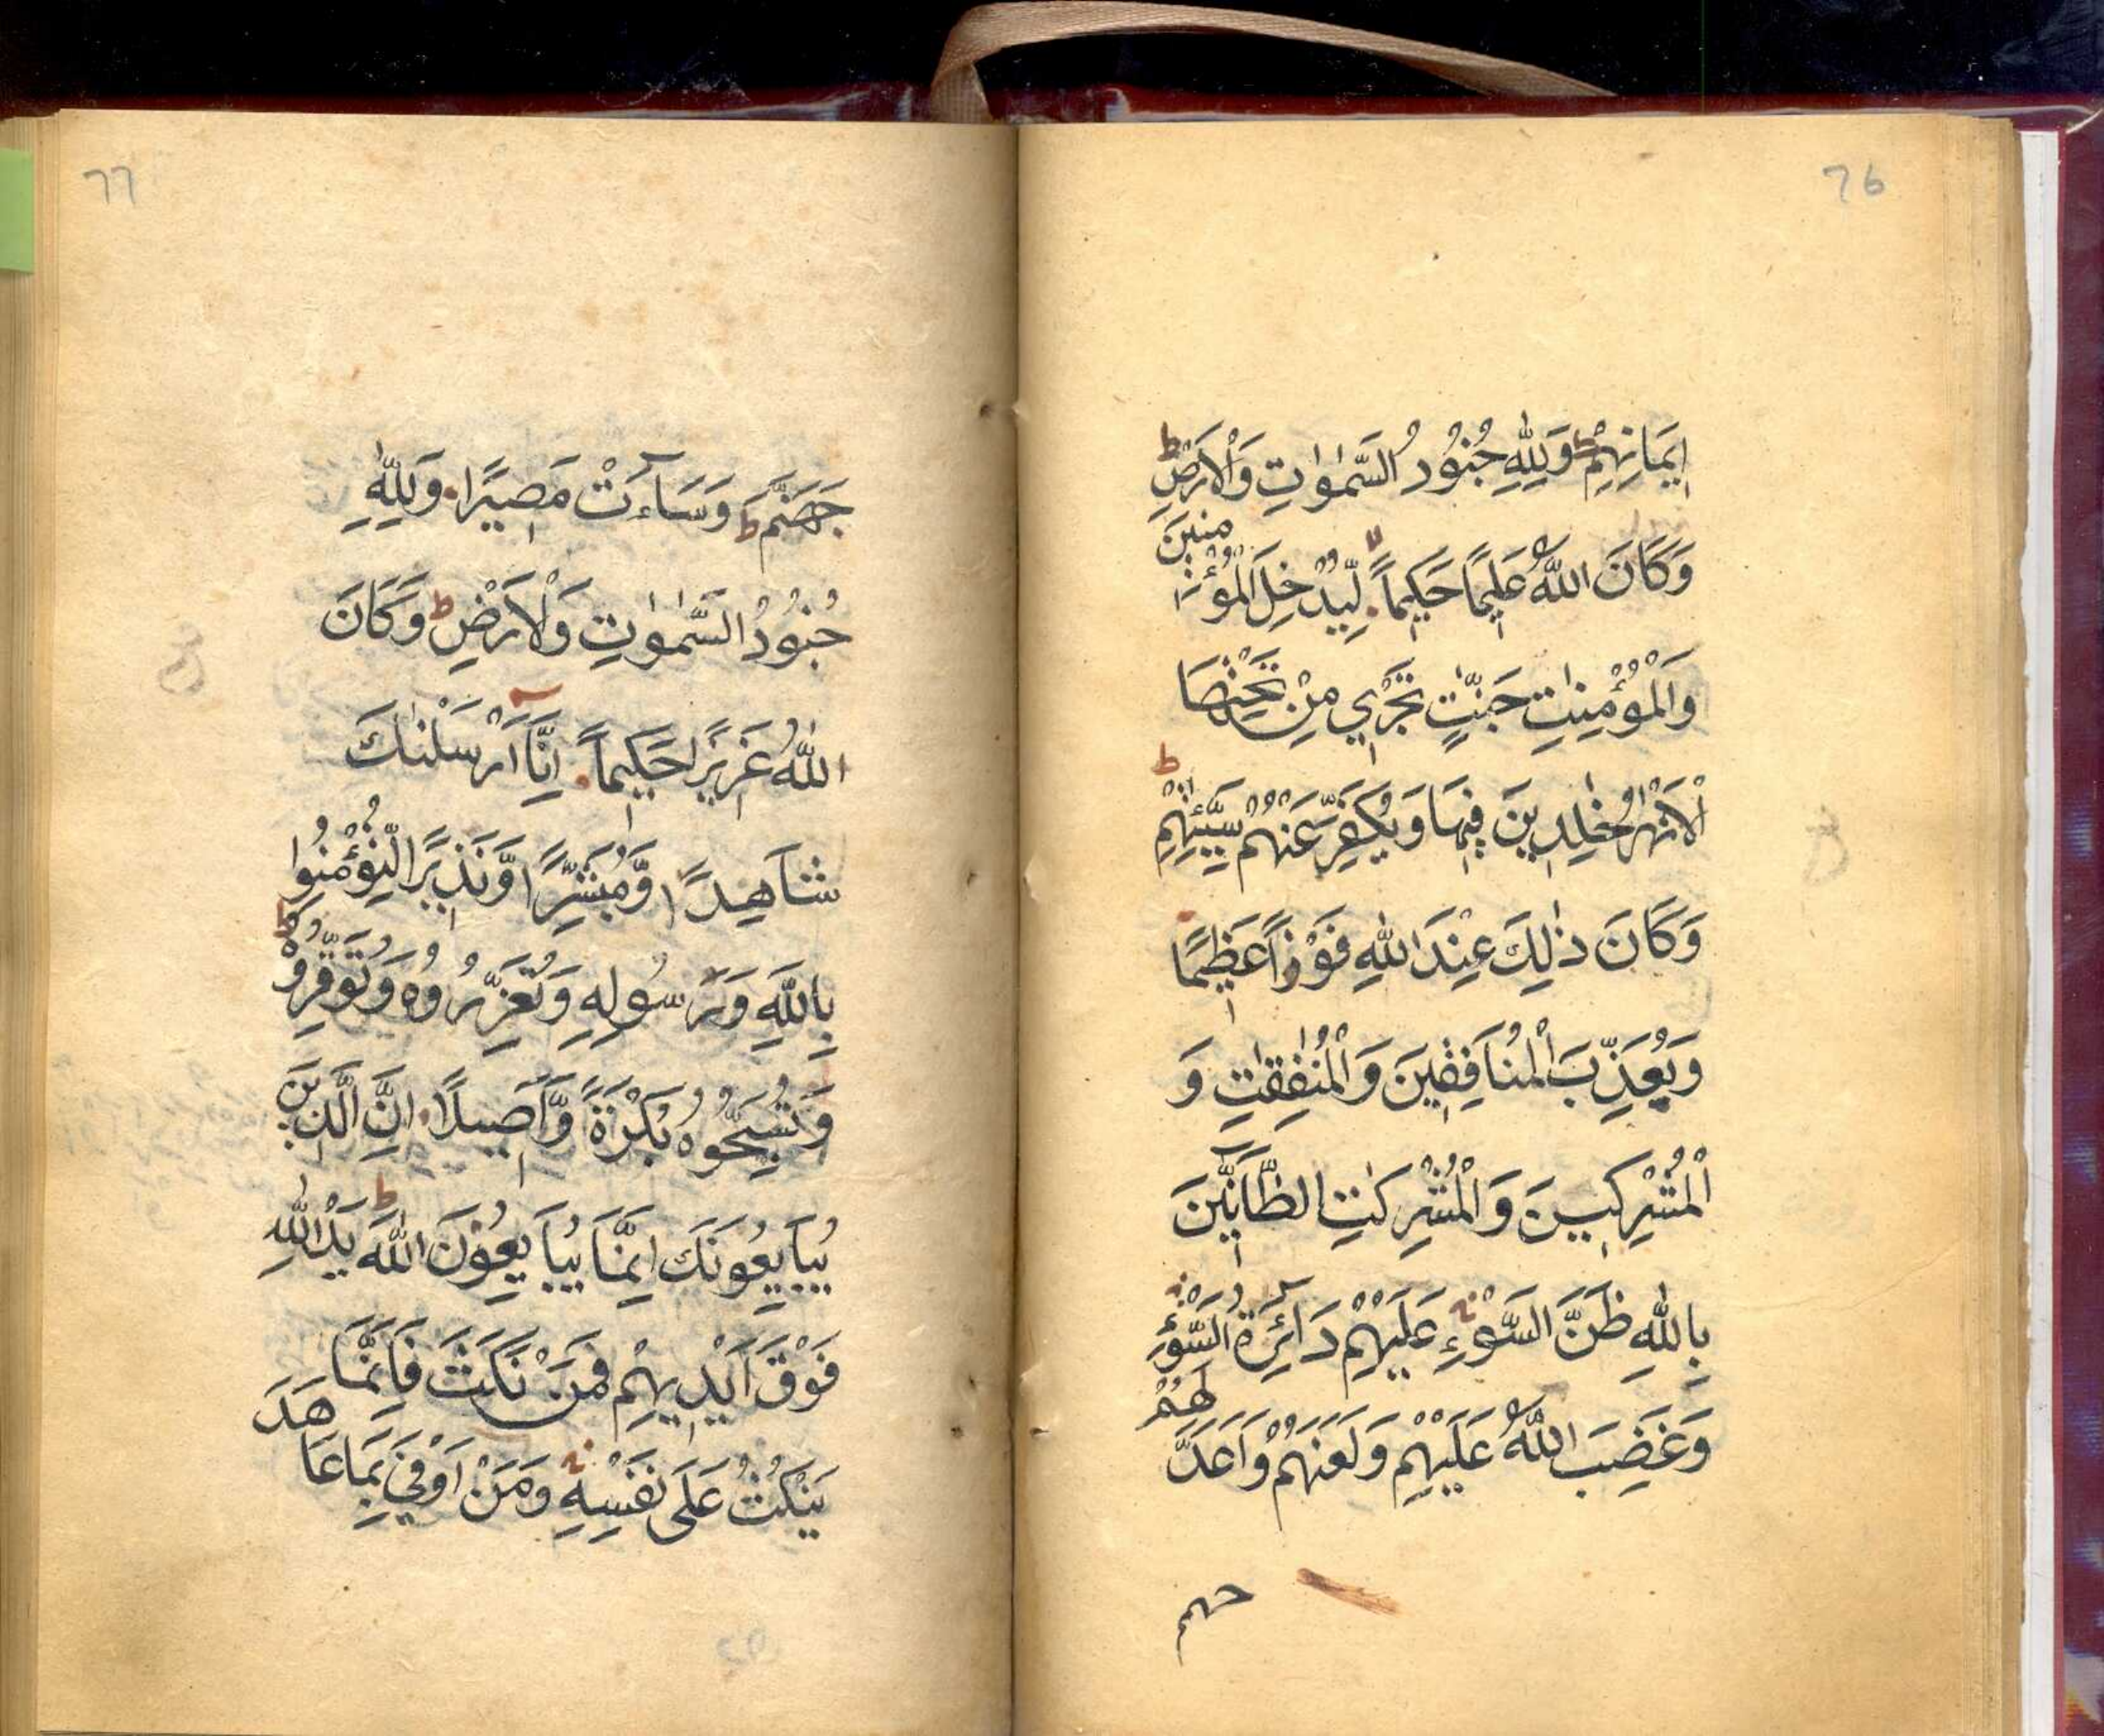 76
اِيمَانِهِمْ ط وَلِلّٰهِ جُنُودُ السَّمٰوٰتِ وَالْاَرْضِ ط
وَكَانَ اللّٰهُ عَلِيمًا حَكِيمًا لا لِّيُدْخِلَ الْمُؤْمِنِينَ
وَالْمُؤْمِنٰتِ جَنّٰتٍ تَجْرِي مِنْ تَحْتِهَا
الْاَنْهٰرُ خٰلِدِينَ فِيهَا وَيُكَفِّرَ عَنْهُمْ سَيِّئٰتِهِمْ ط
وَكَانَ ذٰلِكَ عِنْدَ اللّٰهِ فَوْزًا عَظِيمًا
وَيُعَذِّبَ الْمُنَافِقِينَ وَالْمُنٰفِقٰتِ وَ
الْمُشْرِكِينَ وَالْمُشْرِكٰتِ الظَّآنِّينَ
بِاللّٰهِ ظَنَّ السَّوْءِ عَلَيْهِمْ دَآئِرَةُ السَّوْءِ
وَغَضِبَ اللّٰهُ عَلَيْهِمْ وَلَعَنَهُمْ وَاَعَدَّ لَهُمْ
جهنم
77
جَهَنَّمَ ط وَسَآءَتْ مَصِيرًا وَلِلّٰهِ
جُنُودُ السَّمٰوٰتِ وَالْاَرْضِ ط وَكَانَ
اللّٰهُ عَزِيزًا حَكِيمًا اِنَّآ اَرْسَلْنٰكَ
شَاهِدًا وَّمُبَشِّرًا وَّنَذِيرًا لِّتُؤْمِنُوا
بِاللّٰهِ وَرَسُولِهِ وَتُعَزِّرُوهُ وَتُوَقِّرُوهُ ط
وَتُسَبِّحُوهُ بُكْرَةً وَّاَصِيلًا اِنَّ الَّذِينَ
يُبَايِعُونَكَ اِنَّمَا يُبَايِعُونَ اللّٰهَ ط يَدُ اللّٰهِ
فَوْقَ اَيْدِيهِمْ فَمَنْ نَكَثَ فَاِنَّمَا
يَنْكُثُ عَلَى نَفْسِهِ وَمَنْ اَوْفَى بِمَا عَاهَدَ